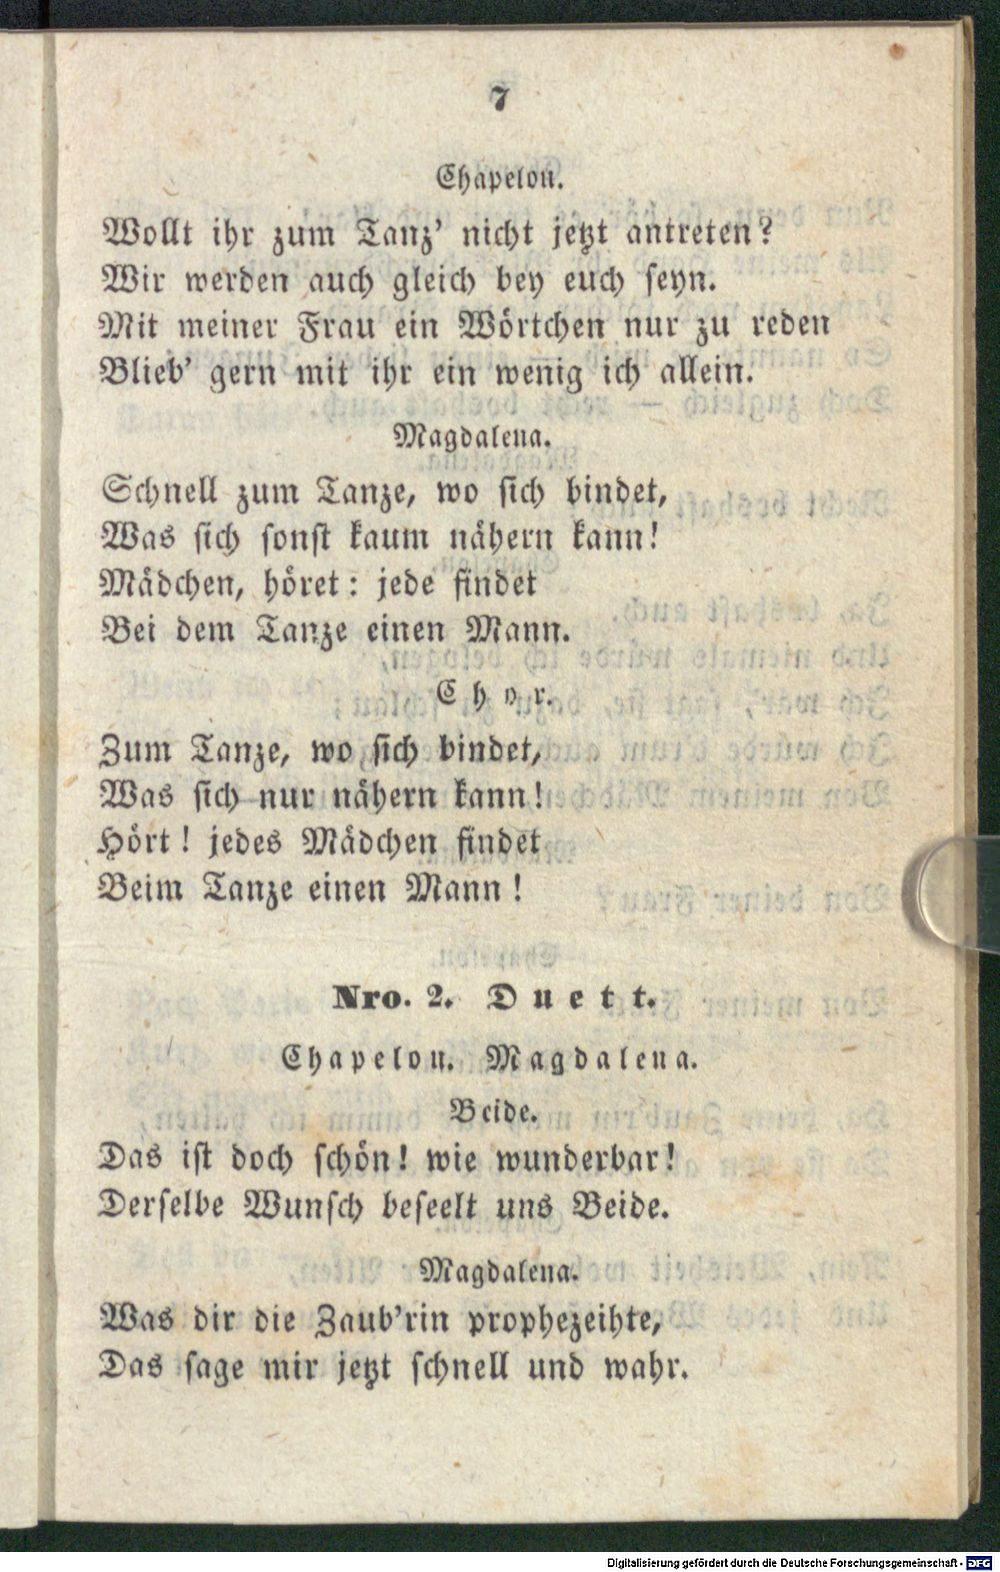 7
Chapelon.
Wollt ihr zum Tanz' nicht jetzt antreten?
Wir werden auch gleich bey euch seyn.
Mit meiner Frau ein Wörtchen nur zu reden
Blieb' gern mit ihr ein wenig ich allein.
Magdalena.
Schnell zum Tanze, wo sich bindet,
Was sich sonst kaum nähern kann!
Mädchen, höret: jede findet
Bei dem Tanze einen Mann.
Chor.
Zum Tanze, wo sich bindet,
Was sich nur nähern kann!
Hört! jedes Mädchen findet
Beim Tanze einen Mann!
Nro. 2. Duett.
Chapelon. Magdalena.
Beide.
Das ist doch schön! wie wunderbar!
Derselbe Wunsch beseelt uns Beide.
Magdalena.
Was dir die Zaub'rin prophezeihte,
Das sage mir jetzt schnell und wahr.
Digitalisierung gefördert durch die Deutsche Forschungsgemeinschaft - DFG